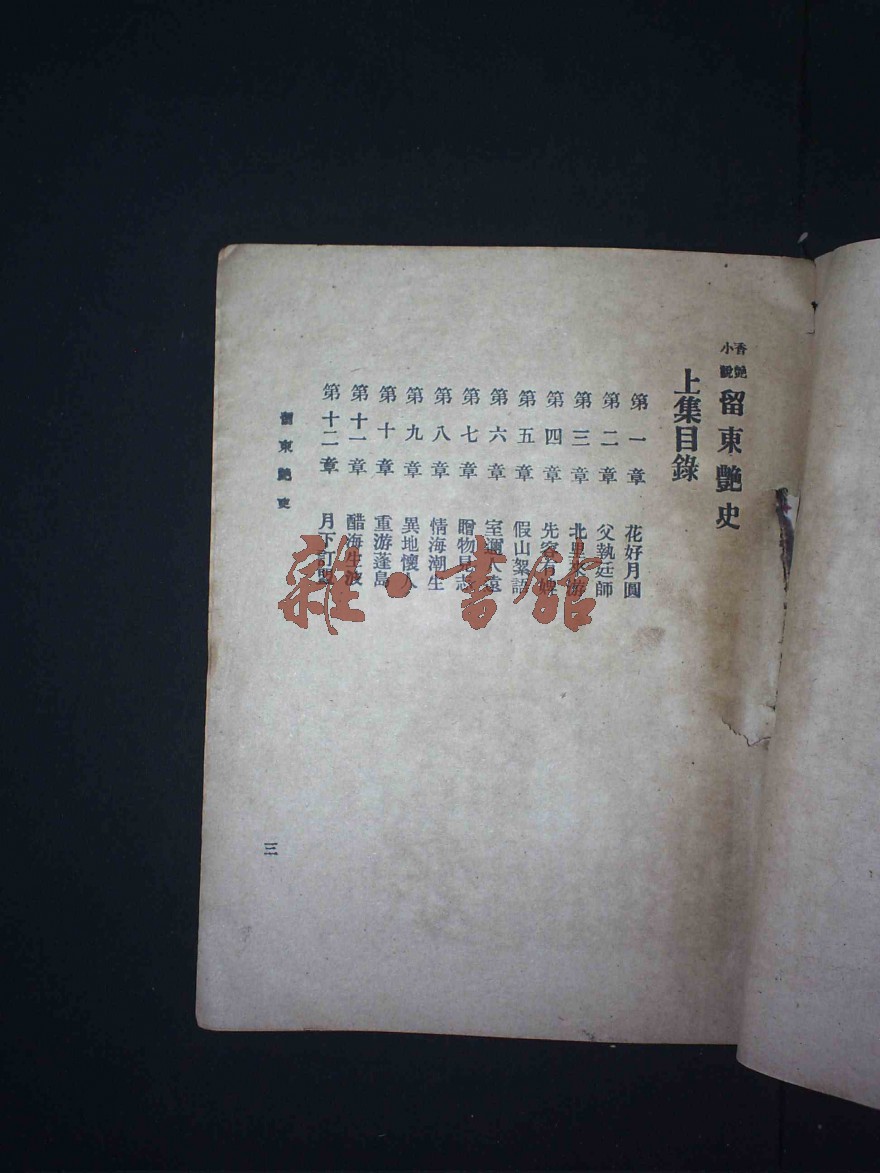 香艶小說 留東艶史
上集目錄
第一章 花好月圓
第二章 父執廷師
第三章 北里來游
第四章 先容有婢
第五章 假山絮語
第六章 室邇人遠
第七章 贈物見志
第八章 情海潮生
第九章 異地懷人
第十章 重游蓬島
第十一章 醋海生波
第十二章 月下訂盟
留東艶史
三
雜·書館